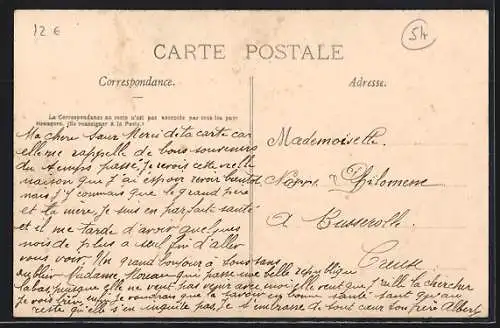 12 €
54
CARTE POSTALE
Correspondance.
Adresse.
La Correspondance au recto n'est pas acceptée par tous les pays
étrangers. (Se renseigner à la Poste.)
Ma chere Sœur Merci di ta carte car
elle me rappelle de bons souvenirs
du temps passé, je revois cette vielle
maison que j'ai espoir revoir bientot
mais j'y connais que le grand père
et la mère, je suis en parfaite santé
et il me tarde d'avoir quelques
mois de plus a seul fin d'aller
vous voir. Un grand bonjour à tous sans
oublier Madame Moreau qui passe une belle république
labas, puisque elle ne veut pas venir avec moi elle veut que j'aille la chercher
je vois bien, enfin je voudrais que la savoir en bonne santé tant qu'au
reste qu'elle s'en inquiète pas, je t'embrasse de tout cœur ton frère Albert
Mademoiselle
Philomene
A Busserolle
Creuse